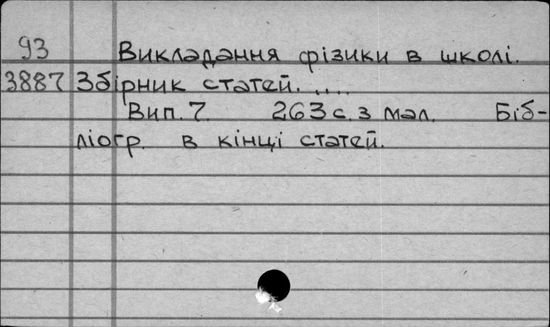 93 Викладання фізики в школі.
3887 Збірник статей. ....
Вип. 7. 263 с. з мал. Біб-
ліогр. в кінці статей.